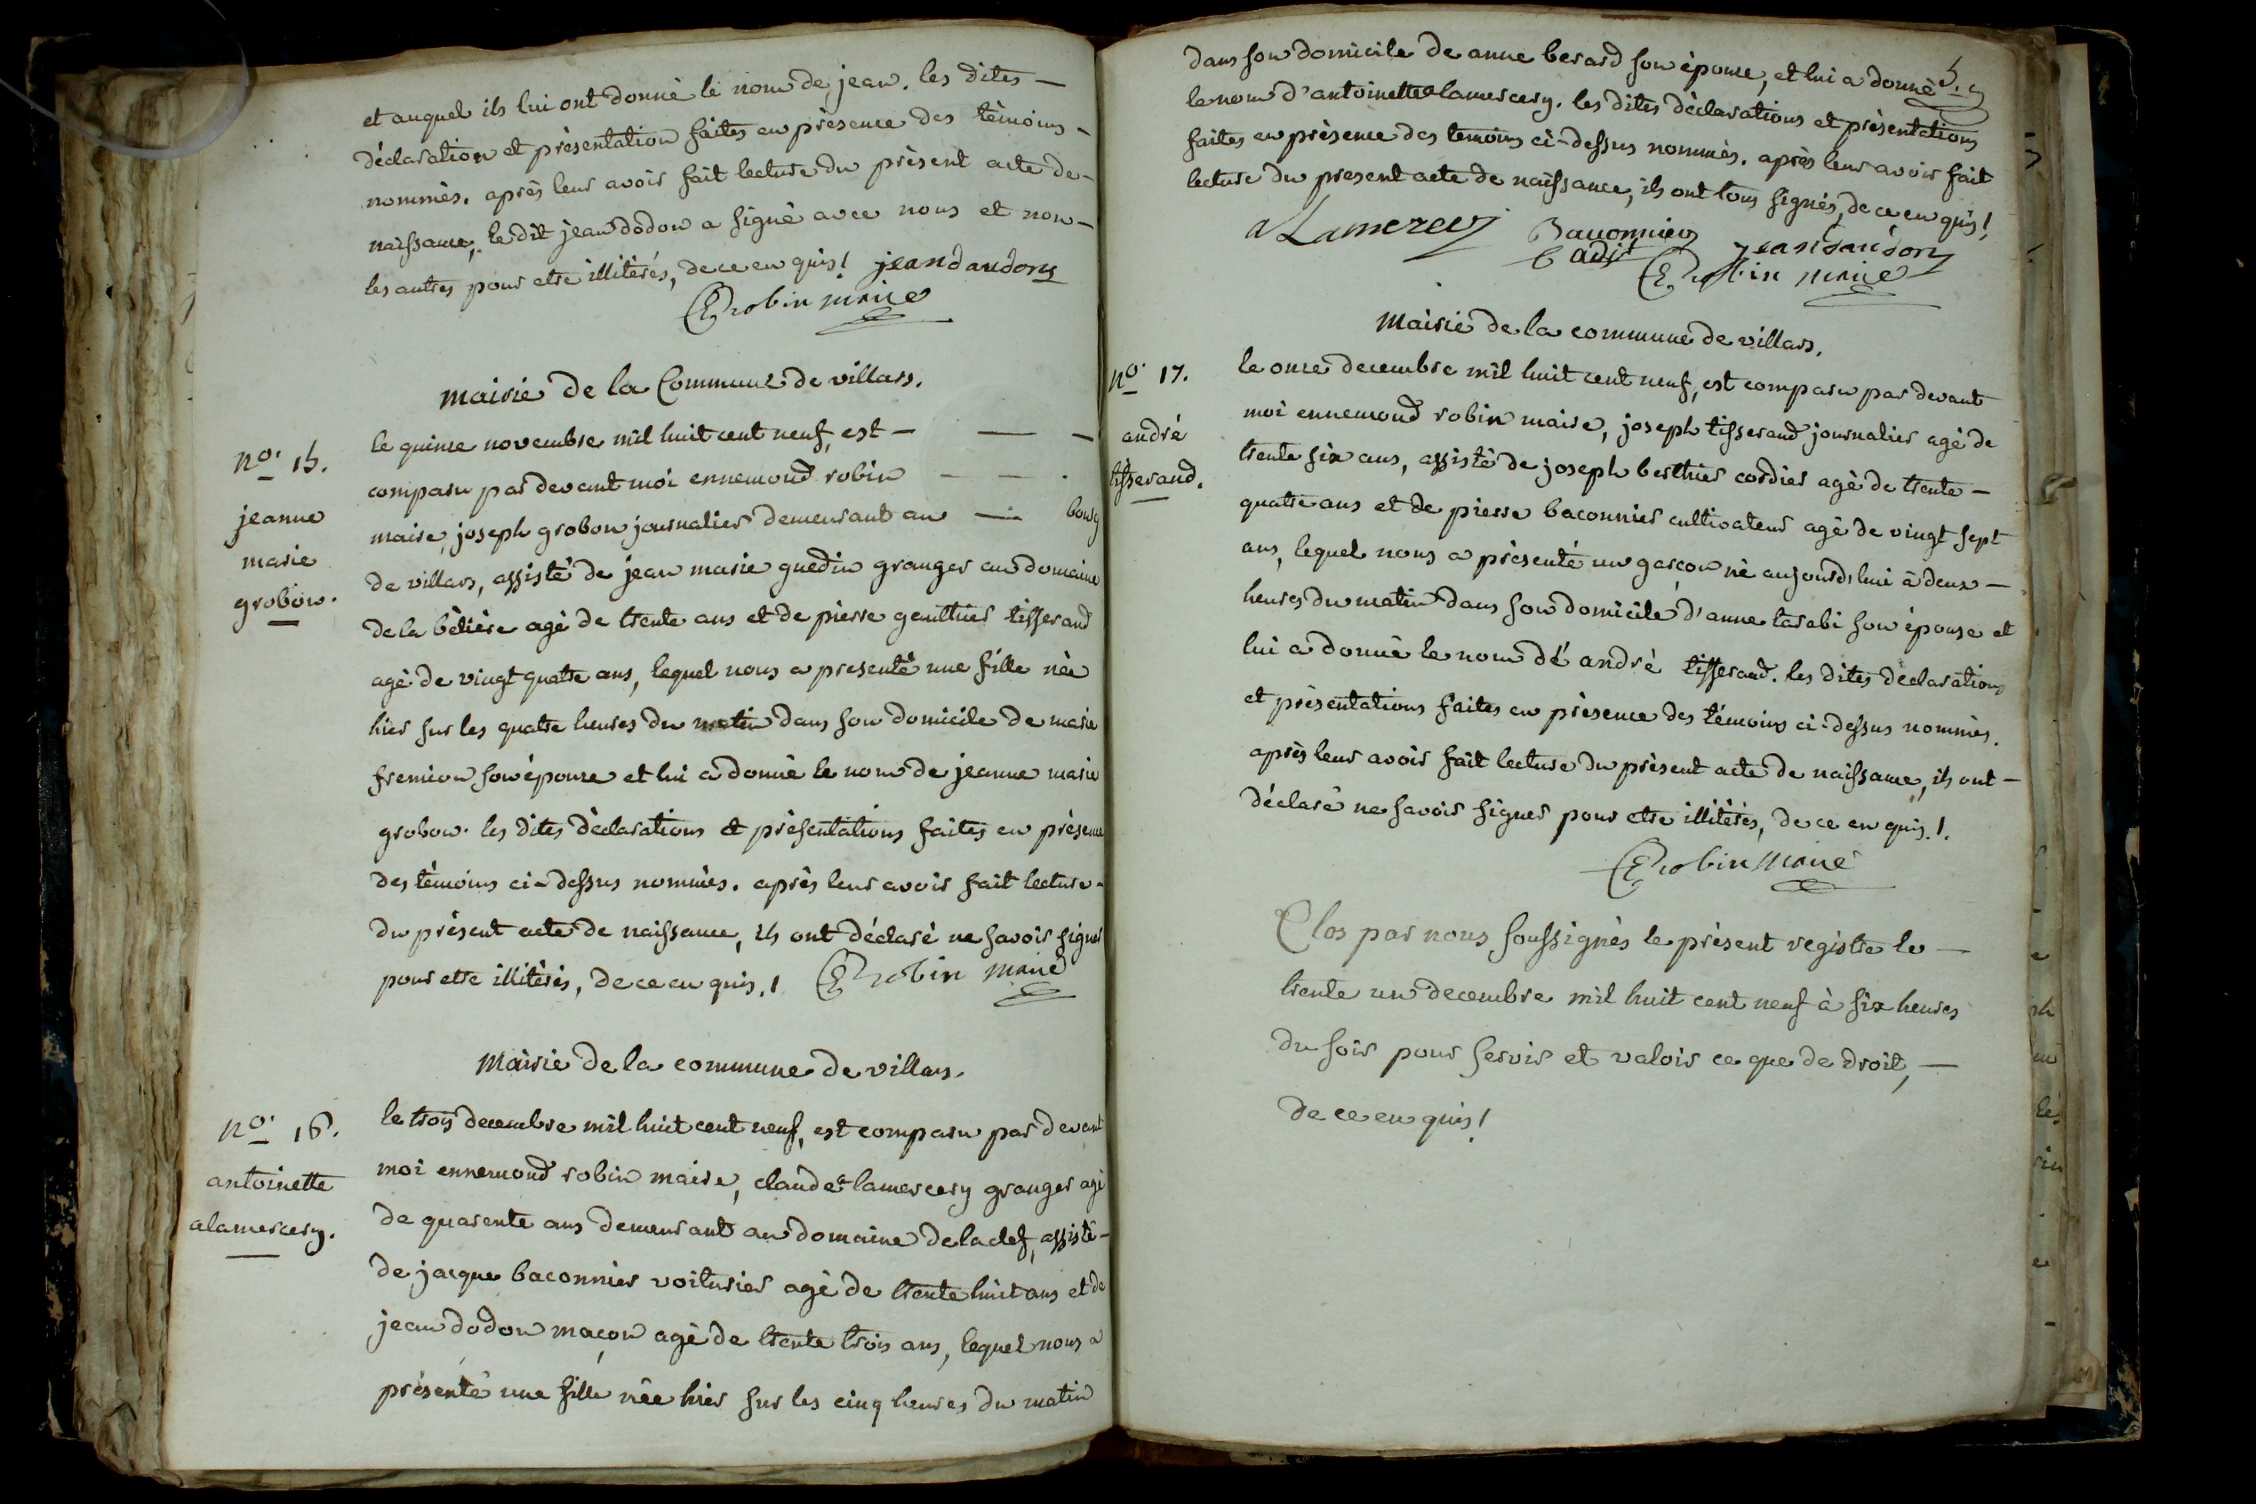 et auquel ils lui ont donné le nom de jean. les dites —
déclaration et présentation faites en présence des témoins -
nommés. après leur avoir fait lecture du présent acte de -
naissance, le dit jean dodon a signé avec nous et non -
les autres pour etre illitérés, de ce enquis! jean daudon
E robin maire
mairie de la Commune de villars.
no. 15.
jeanne
marie
grobon.
le quinze novembre mil huit cent neuf, est —
comparu par devant moi ennemond robin
maire, joseph grobon journalier demeurant au — bourg
de villars, assisté de jean marie guedin granger au domaine
de la bètière agé de trente ans et de pierre genthier tisserand
agé de vingt quatre ans, lequel nous a presenté une fille née
hier sur les quatre heures du matin dans son domicile de marie
fremion son épouse et lui a donné le nom de jeanne marie
grobon. les dites déclarations et présentations faites en présence
des témoins ci-dessus nommés. après leur avoir fait lecture -
du présent acte de naissance, ils ont déclaré ne savoir signer
pour etre illitérés, de ce enquis.! E robin maire
mairie de la commune de villars.
no. 16.
antoinette
alamercery.
le trois decembre mil huit cent neuf, est comparu par devant
moi ennemond robin maire, claude alamercery granger agé
de quarente ans demeurant au domaine de la clef, assisté -
de jacque baconnier voiturier agé de trente huit ans et de
jean dodon maçon agé de trente trois ans, lequel nous a
présenté une fille née hier sur les cinq heures du matin
5.
dans son domicile de anne berard son épouse, et lui a donné
le nom d'antoinette alamercery. les dites déclarations et présentations
faites en présence des temoins ci-dessus nommés. après leur avoir fait
lecture du present acte de naissance, ils ont tous signés, de ce enquis!
a Lamercery Baconnier jean daudon
cadit E robin maire
Mairie de la commune de villars.
no. 17.
andré
tisserand.
le onze decembre mil huit cent neuf, est comparu par devant
moi ennemond robin maire, joseph tisserand journalier agé de
trente six ans, assisté de joseph berthier cordier agé de trente —
quatre ans et de pierre baconnier cultivateur agé de vingt sept
ans, lequel nous a présenté un garçon né aujourd'hui à deux —
heures du matin dans son domicile d'anne tarabi son épouse et
lui a donné le nom dé andré tisserand. les dites déclarations
et présentations faites en présence des témoins ci-dessus nommés.
après leur avoir fait lecture du présent acte de naissance, ils ont —
déclaré ne savoir signer pour etre illitérés, de ce enquis.!.
E robin maire
Clos par nous soussignés le présent registre le —
trente un decembre mil huit cent neuf à six heures
du soir pour servir et valoir ce que de droit, —
de ce enquis!